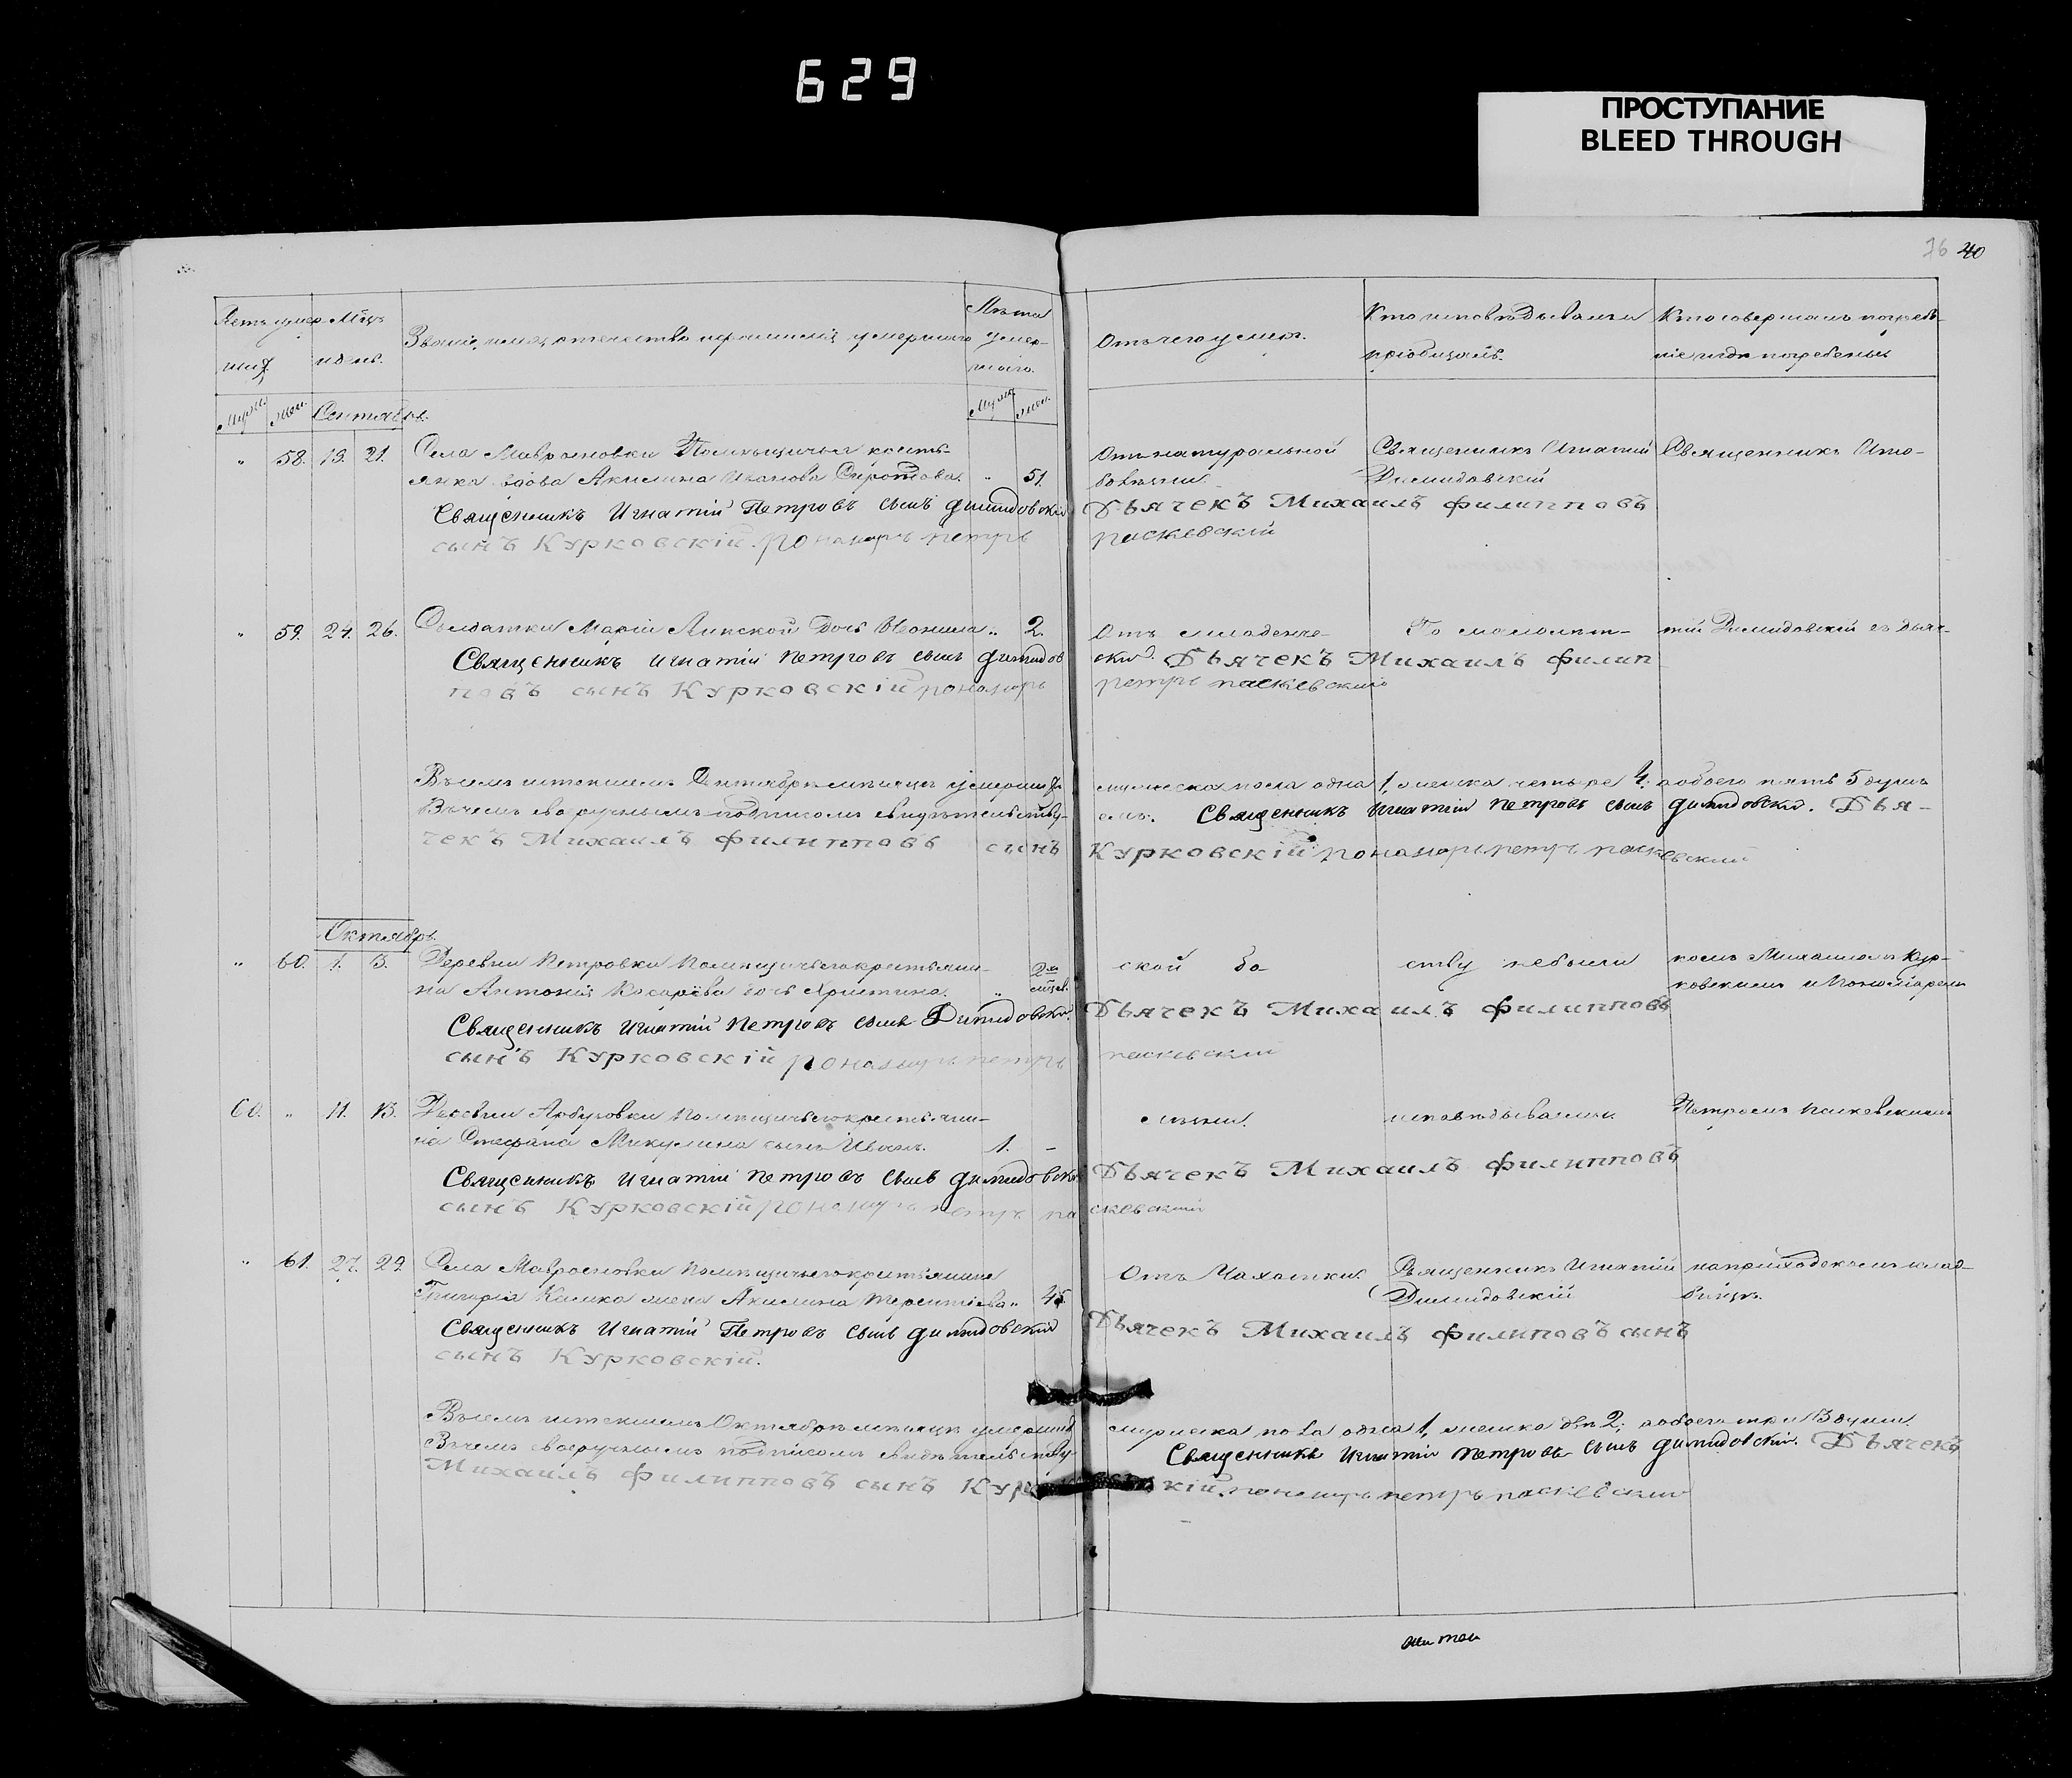 629
ПРОСТУПАНИЕ
BLEED THROUGH
40
Званіе, имя, отечество и фамилія умершаго
Лѣта умер-
шаго.
Отъ чего умеръ.
Кто исповѣдывалъ и
пріобщалъ.
Кто совершалъ погребе-
ніе и гдѣ погребены
Сентябрь.
" 58. 19. 21. Села Маврой­новки Помѣщичья кресть-
янка вдова Акилина Иванова Сиротова. " 51.
Отъ натуральной
болѣзни.
Священникъ Игнатій
Димидовскій
Священникъ Игна-
Священникъ Игнатій Петровъ сынъ Димидовскій Дьячекъ Михаилъ Филипповъ
сынъ Курковскій. Пономарь Петръ Паскевскій
" 59. 24. 26. Солдатки Маріи Липской дочь " 2.
Отъ младенче-
По малолѣт-
тій Димидовскій съ дьяч-
Священникъ Игнатій Петровъ сынъ Димидов
ский. Дьячекъ Михаилъ Филип
повъ сынъ Курковскій пономарь Петръ Паскевский
Въ семъ истекшемъ Сентябрѣ мѣсяцѣ умершихъ мужеска пола одна 1, женска четыре 4: а обоего пять 5 душъ
Въ чемъ своеручнымъ подписомъ свидѣтельству-емъ. Священникъ Игнатій Петровъ сынъ Димидовский. Дья-
чекъ Михаилъ Филипповъ сынъ Курковскій пономарь Петръ Паскевский
Октябрь.
" 60. 1. 3. Деревни Петровки помѣщичьего крестьяни-
на Антонія Косарева дочь Христина. "
2хъ
ской бо-
ству небыли
комъ Михаиломъ Кур-
ковскимъ и Пономаремъ
Священникъ Игнатій Петровъ сынъ Димидовский Дьячекъ Михаилъ Филипповъ
сынъ Курковскій пономарь Петръ Паскевский
60. " 11. 13. Деревни Арбузовки помѣщичьего крестьяни-
на Стефана Микулина сынъ Иванъ. 1. –
лѣзни.
исповѣдываемы
Петромъ Паскевскимъ
Священникъ Игнатій Петровъ сынъ Димидовский Дьячекъ Михаилъ Филипповъ
сынъ Курковскій пономарь Петръ Паскевский
" 61. 27. 29. Села Маврой­новки помѣщичьего крестьянина
Григорія жена Акилина Терентіева " 45.
Отъ Чахотки.
Священникъ Игнатій
Димидовскій
на приходскомъ клад-
бищѣ.
Священникъ Игнатій Петровъ сынъ Димидовский Дьячекъ Михаилъ Филиповъ сынъ
сынъ Курковскій.
Въ семъ истекшемъ Октябрѣ мѣсяцѣ умершихъ мужеска пола одна 1, женска двѣ 2; а обоего три 3 души.
Въ чемъ своеручнымъ подписомъ свидѣтельству- Священникъ Игнатій Петровъ сынъ Димидовский. Дьячекъ
Михаилъ Филипповъ сынъ Кур кій. пономарь Петръ Паскевский